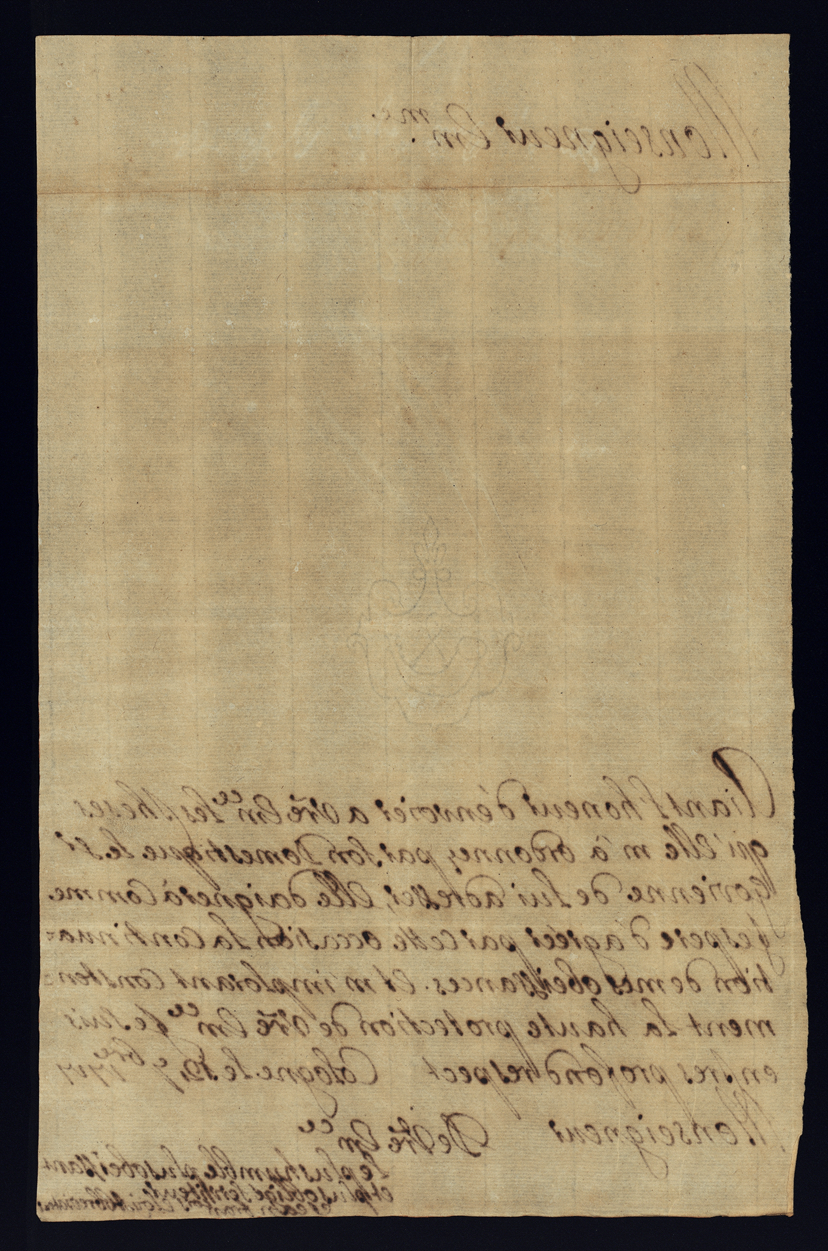 Monseigneur Em.me
Aiant l'honeur d'envoier a Vre Emce les theses
qu'elle m'a ordonnez par son domestique le sr
de lui adresser, elle daignera comme
j'espere d'agréer par cette occasion la continua=
tion de mes obeissances. et m'implorant constan=
ment la haute protection de Vre Emce je suis
en tres profond respect Cologne le 19 7bre 1717
Monseigneur De Vre Emce
le plus humble plus obeissant
et plus obligé serviteur